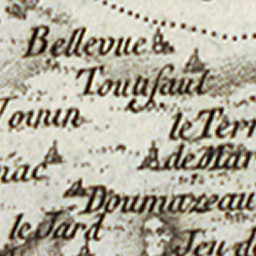 Bellevue
Toutifaut
le Terr
de Mar
Doumazeau
le Jard
Jeu de